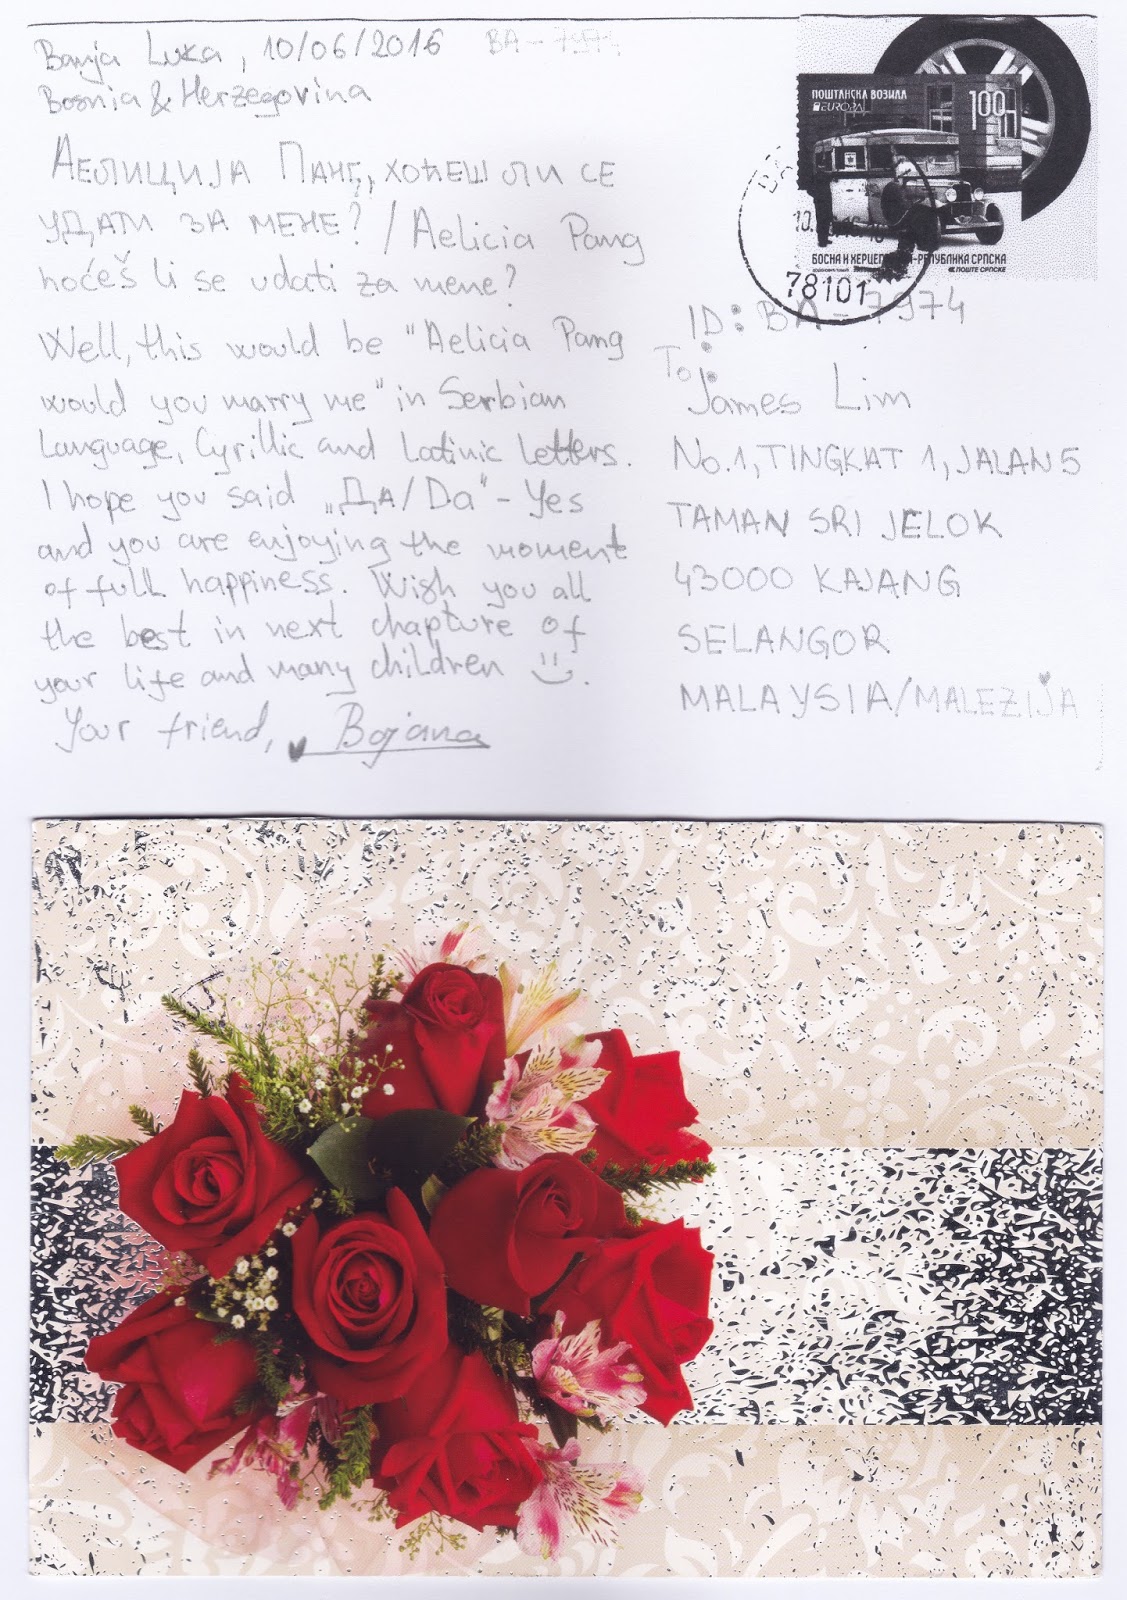 Banja Luka, 10/06/2016 BA-7974
Bosnia & Herzegovina
Аелиција Панг, хоћеш ли се
удати за мене? / Aelicia Pang
hoćeš li se udati za mene?
Well, this would be "Aelicia Pang
would you marry me" in Serbian
Language, Cyrillic and Latinic Letters.
I hope you said „Да/Da" - Yes
and you are enjoying the moment
of full happiness. Wish you all
the best in next chapture of
your life and many children
Your friend, Bojana
ПОШТАНСКА ВОЗИЛА
EUROPA
100
БОСНА И ХЕРЦЕГОВИНА-РЕПУБЛИКА СРПСКА
ПОШТЕ СРПСКЕ
78101
ID: BA 7974
To:
James Lim
No.1, TINGKAT 1, JALAN 5
TAMAN SRI JELOK
43000 KAJANG
SELANGOR
MALAYSIA/MALEZIJA